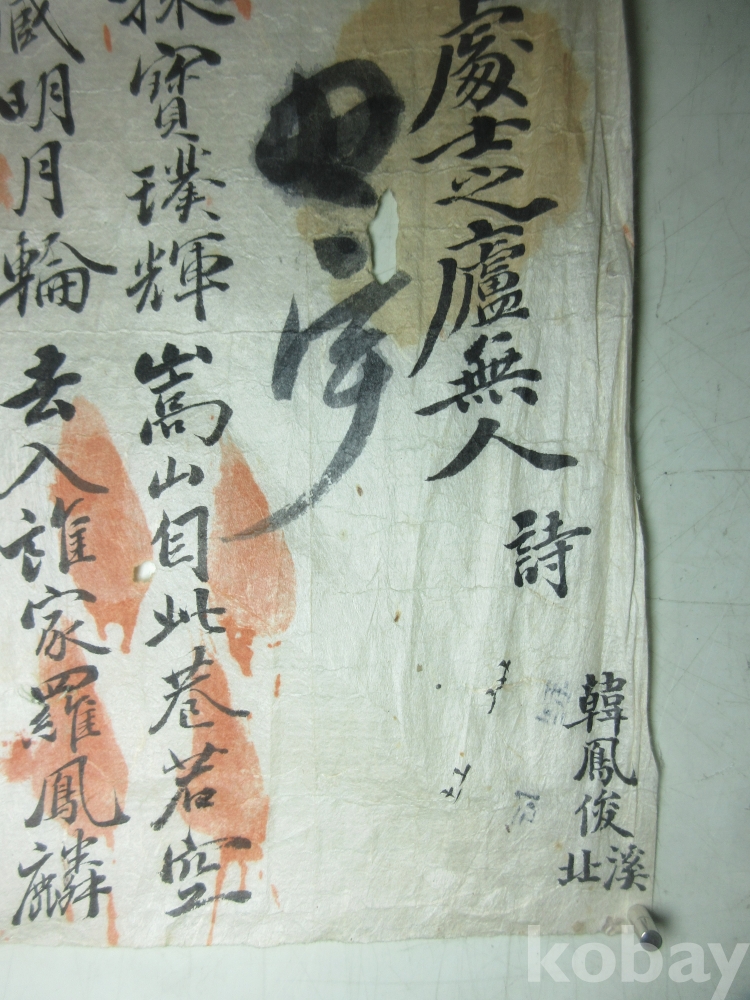 韓鳳俊
溪北
處士之廬無人 詩
寶璞輝嵩山自此巷若空
明月輪去入誰家羅鳳麟
kobay